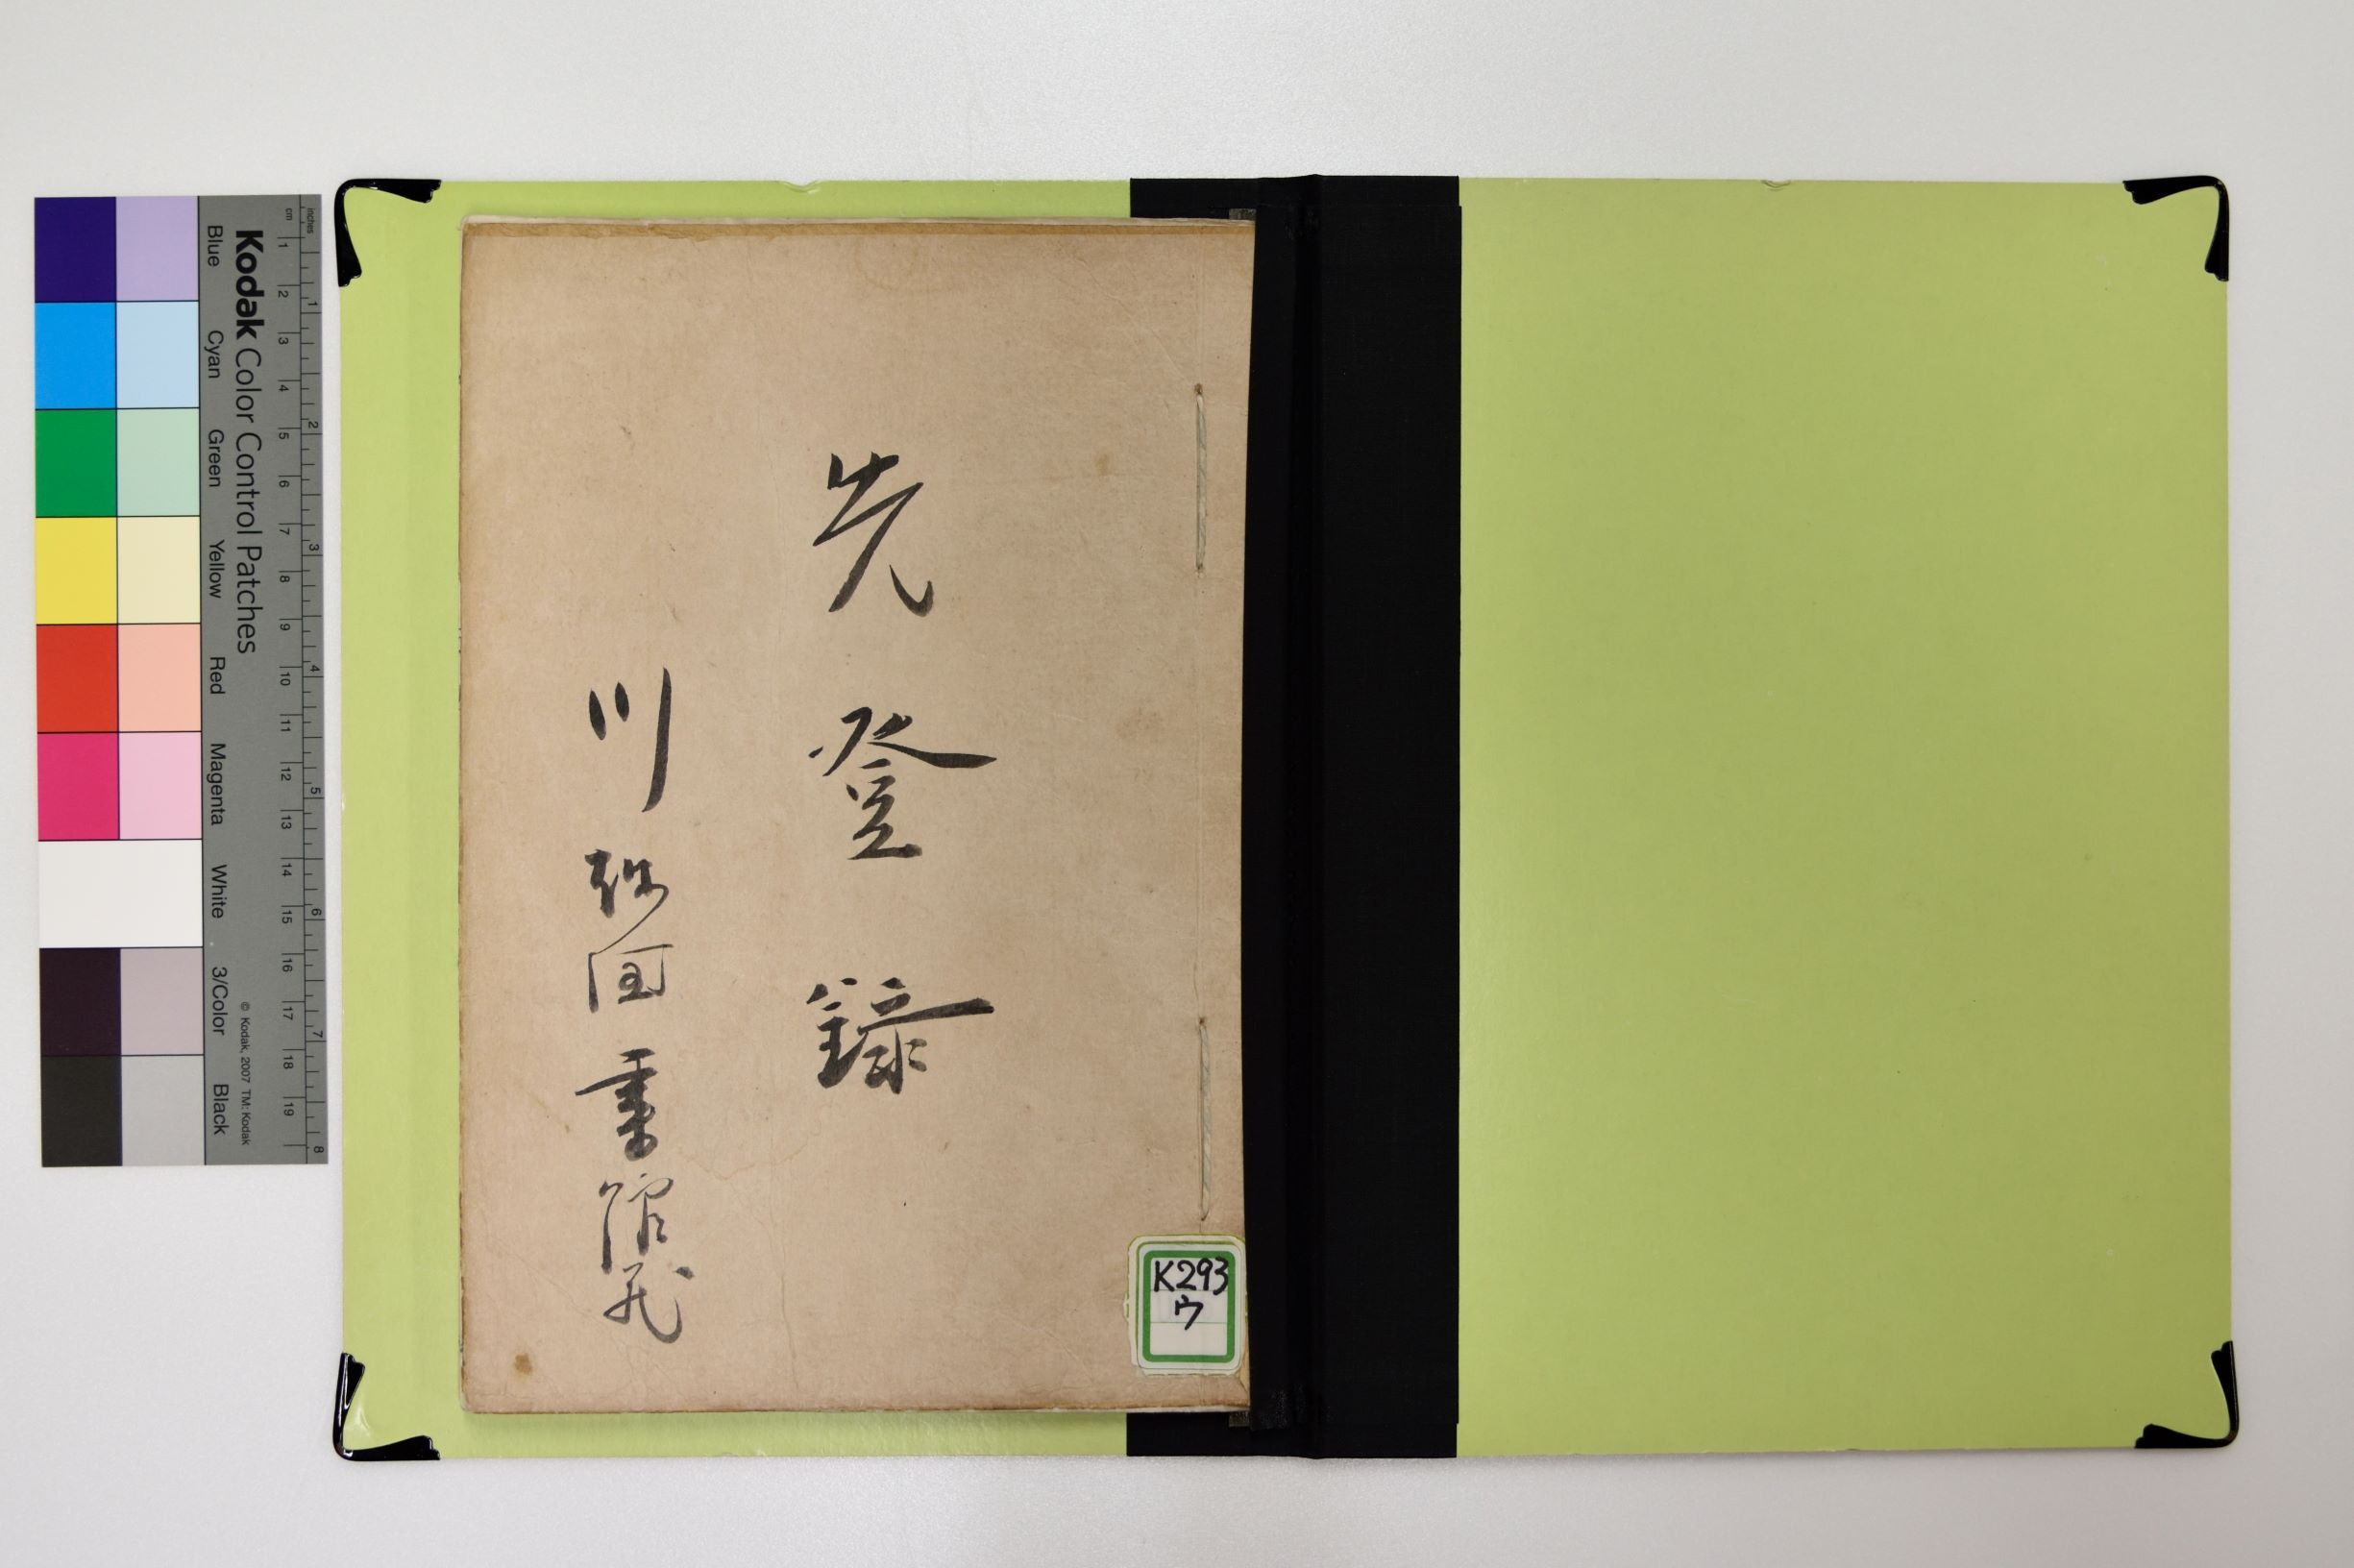 先登録
川越図書館蔵
K293
ウ
Kodak Color Control Patches
Blue Cyan Green Yellow Red Magenta White 3/Color Black
© Kodak, 2007 TM: Kodak
cm 1 2 3 4 5 6 7 8 9 10 11 12 13 14 15 16 17 18 19
inches 1 2 3 4 5 6 7 8